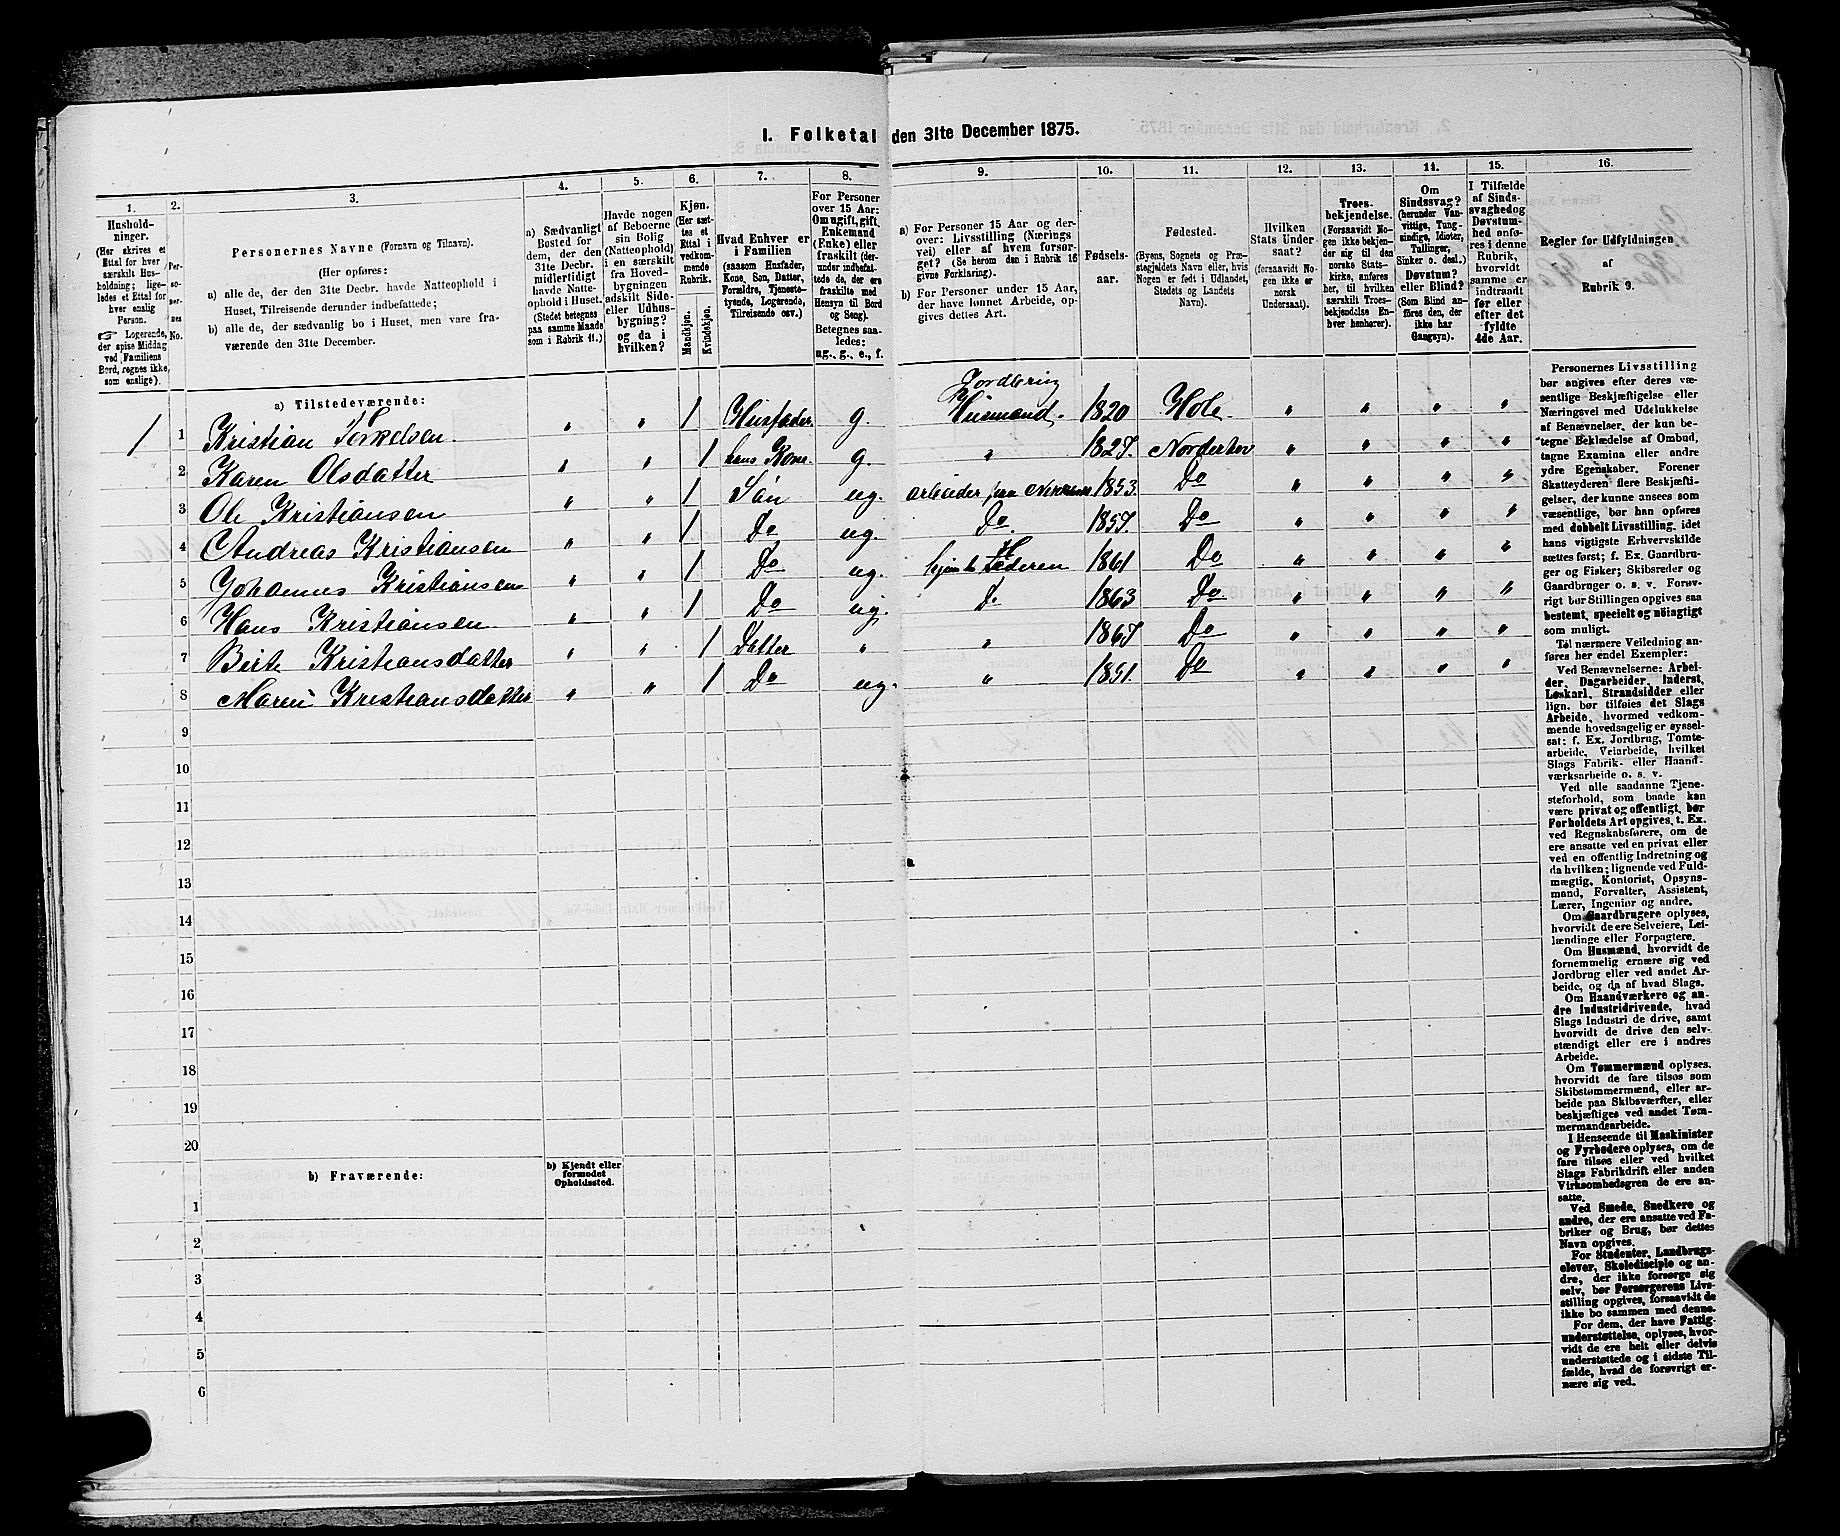 I. Folketal den 31te December 1875.
1. 2. 3. 4. 5. 6. 7. 8. 9. 10. 11. 12. 13. 14. 15. 16.
Hushold-
ninger.
(Her skrives et
Ettal for hver
særskilt Hus-
holdning; lige-
ledes et Ettal for
hver enslig
Person.
☞ Logerende,
der spise Middag
ved Familiens
Bord, regnes ikke
som enslige).
Per-
so-
ner-
nes
No.
Personernes Navne (Fornavn og Tilnavn).
(Her opføres:
a) alle de, der den 31te Decbr. havde Natteophold i
Huset, Tilreisende derunder indbefattede;
b) alle de, der sædvanlig bo i Huset, men vare fra-
værende den 31te December.
a) Sædvanligt
Bosted for
dem, der den
31te Decbr.
midlertidigt
havde Natte-
ophold i Huset.
(Stedet betegnes
paa samme Maade
som i Rubrik 11.)
Havde nogen
af Beboerne
sin Bolig
(Natteophold)
i en særskilt
fra Hoved-
bygningen
adskilt Side-
eller Udhus-
bygning?
og da i
hvilken?
Kjøn.
(Her sæt-
tes et
Ettal i
vedkom-
mende
Rubrik.
Mandkjøn.
Kvindekjøn.
Hvad Enhver er
i Familien
(saasom Husfader,
Kone, Søn, Datter,
Forældre, Tjeneste-
tyende, Logerende,
Tilreisende osv.)
For Personer
over 15 Aar:
Om ugift, gift,
Enkemand
(Enke) eller
fraskilt (der-
under indbefat-
tede de, der ere
fraskilte med
Hensyn til Bord
og Seng).
Betegnes saa-
ledes:
ug., g., e., f.
a) For Personer 15 Aar og der-
over: Livsstilling (Nærings
vei) eller af hvem forsør-
get? (Se herom den i Rubrik 16
givne Forklaring).
b) For Personer under 15 Aar,
der have lønnet Arbeide, op-
gives dettes Art.
Fødsels-
aar.
Fødested.
(Byens, Sognets og Præ-
stegjeldets Navn eller, hvis
Nogen er født i Udlandet,
Stedets og Landets
Navn).
Hvilken
Stats Under
saat?
(forsaavidt No-
gen ikke er
norsk
Undersaat).
Troes-
bekjendelse.
(Forsaavidt No-
gen ikke bekjen-
der sig til den
norske Stats-
kirke, anføres
her, til hvilken
særskilt Troes-
bekjendelse En-
hver henhører).
Om
Sindssvag?
(herunder Van-
vittige, Tung-
sindige, Idioter,
Tullinger,
Sinker o. desl.).
Døvstum?
eller Blind?
(Som Blind an-
føres den, der
ikke har
Gangsyn).
I Tilfælde
af Sinds-
svaghed og
Døvstum-
hed anfø-
res i denne
Rubrik,
hvorvidt
samme er
indtraadt
før eller
efter det
fyldte
4de Aar.
Regler for Udfyldningen
af
Rubrik 9.
a) Tilstedeværende:
1 1 Kristian Torkelsen " " 1 Husfader g. Jordbrug Husmand. 1820 Hole " " " "
2 Karen Olsdatter " " 1 hans Kone g. " 1827. Norderhov " " " "
3 Ole Kristiansen " " 1 Søn ug. arbeider paa 1853. Do " " " "
4 Andreas Kristiansen " " 1 Do ug. Do 1857. Do " " " "
5 Johannes Kristiansen " " 1 Do ug. Faderen 1861 Do " " " "
6 Hans Kristiansen " " 1 Do ug. Do 1863 Do " " " "
7 Birte Kristiansdatter " " 1 Datter " " 1867 Do " " " "
8 Maren Kristiansdatter " " 1 Do ug. " 1851. Do " " " "
9
10
11
12
13
14
15
16
17
18
19
20
b) Fraværende:
b) Kjendt eller
formodet
Opholdssted.
1
2
3
4
5
6
Personernes Livsstilling
bør angives efter deres væ-
sentlige Beskjæftigelse eller
Næringsvei med Udelukkelse
af Benævnelser, der kun be-
tegne Beklædelse af Ombud,
tagne Examina eller andre
ydre Egenskaber. Forener
Skatteyderen flere Beskjæfti-
gelser, der kunne ansees som
væsentlige, bør han opføres
med dobbelt Livsstilling, idet
hans vigtigste Erhvervskilde
sættes først; f. Ex. Gaardbru-
ger og Fisker; Skibsreder og
Gaardbruger o. s. v. Forøv-
rigt bør Stillingen opgives saa
bestemt, specielt og nöiagtigt
som muligt.
Til nærmere Veiledning an-
føres her endel Exempler:
Ved Benævnelserne: Arbei-
der, Dagarbeider, Inderst,
Løskarl, Strandsidder eller
lign. bør tilføies det Slags
Arbeide, hvormed vedkom-
mende hovedsagelig er syssel-
sat; f. Ex. Jordbrug, Tomte-
arbeide, Veiarbeide, hvilket
Slags Fabrik- eller Haand-
værksarbeide o. s. v.
Ved alle saadanne Tjene-
steforhold, som baade kan
være privat og offentligt, bør
Forholdets Art opgives, t. Ex.
ved Regnskabsførere, om de
ere ansatte ved en privat eller
ved en offentlig Indretning og
da hvilken; lignende ved Fuld-
mægtig, Kontorist, Opsyns-
mand, Forvalter, Assistent,
Lærer, Ingeniør og andre.
Om Gaardbrugere oplyses,
hvorvidt de ere Selveiere, Lei-
lændinge eller Forpagtere.
Om Husmænd, hvorvidt de
fornemmelig ernære sig ved
Jordbrug eller ved andet Ar-
beide, og da af hvad Slags.
Om Haandværkere og an-
dre Industridrivende, hvad
Slags Industri de drive, samt
hvorvidt de drive den selv-
stændigt eller ere i andres
Arbeide.
Om Tømmermænd oplyses,
hvorvidt de fare tilsøs som
Skibstømmermænd, eller ar-
beide paa Skibsværfter, eller
beskjæftiges ved andet Tøm-
mermandsarbeide.
I Henseende til Maskinister
og Fyrbødere oplyses, om de
fare tilsøs eller ved hvilket
Slags Fabrikdrift eller anden
Virksomhedsgren de ere an-
satte.
Ved Smede, Snedkere og
andre, der ere ansatte ved Fa-
briker og Brug, bør dettes
Navn opgives.
For Studenter, Landbrugs-
elever, Skoledisciple og an-
dre, der ikke forsørge sig
selv, bør Forsørgerens Livs-
stilling opgives, forsaavidt de
ikke bo sammen med denne.
For dem, der have Fattig-
understøttelse, oplyses, hvor-
vidt de ere helt eller delvis
understøttede og i sidste Til-
fælde, hvad de forøvrigt er-
nære sig ved.